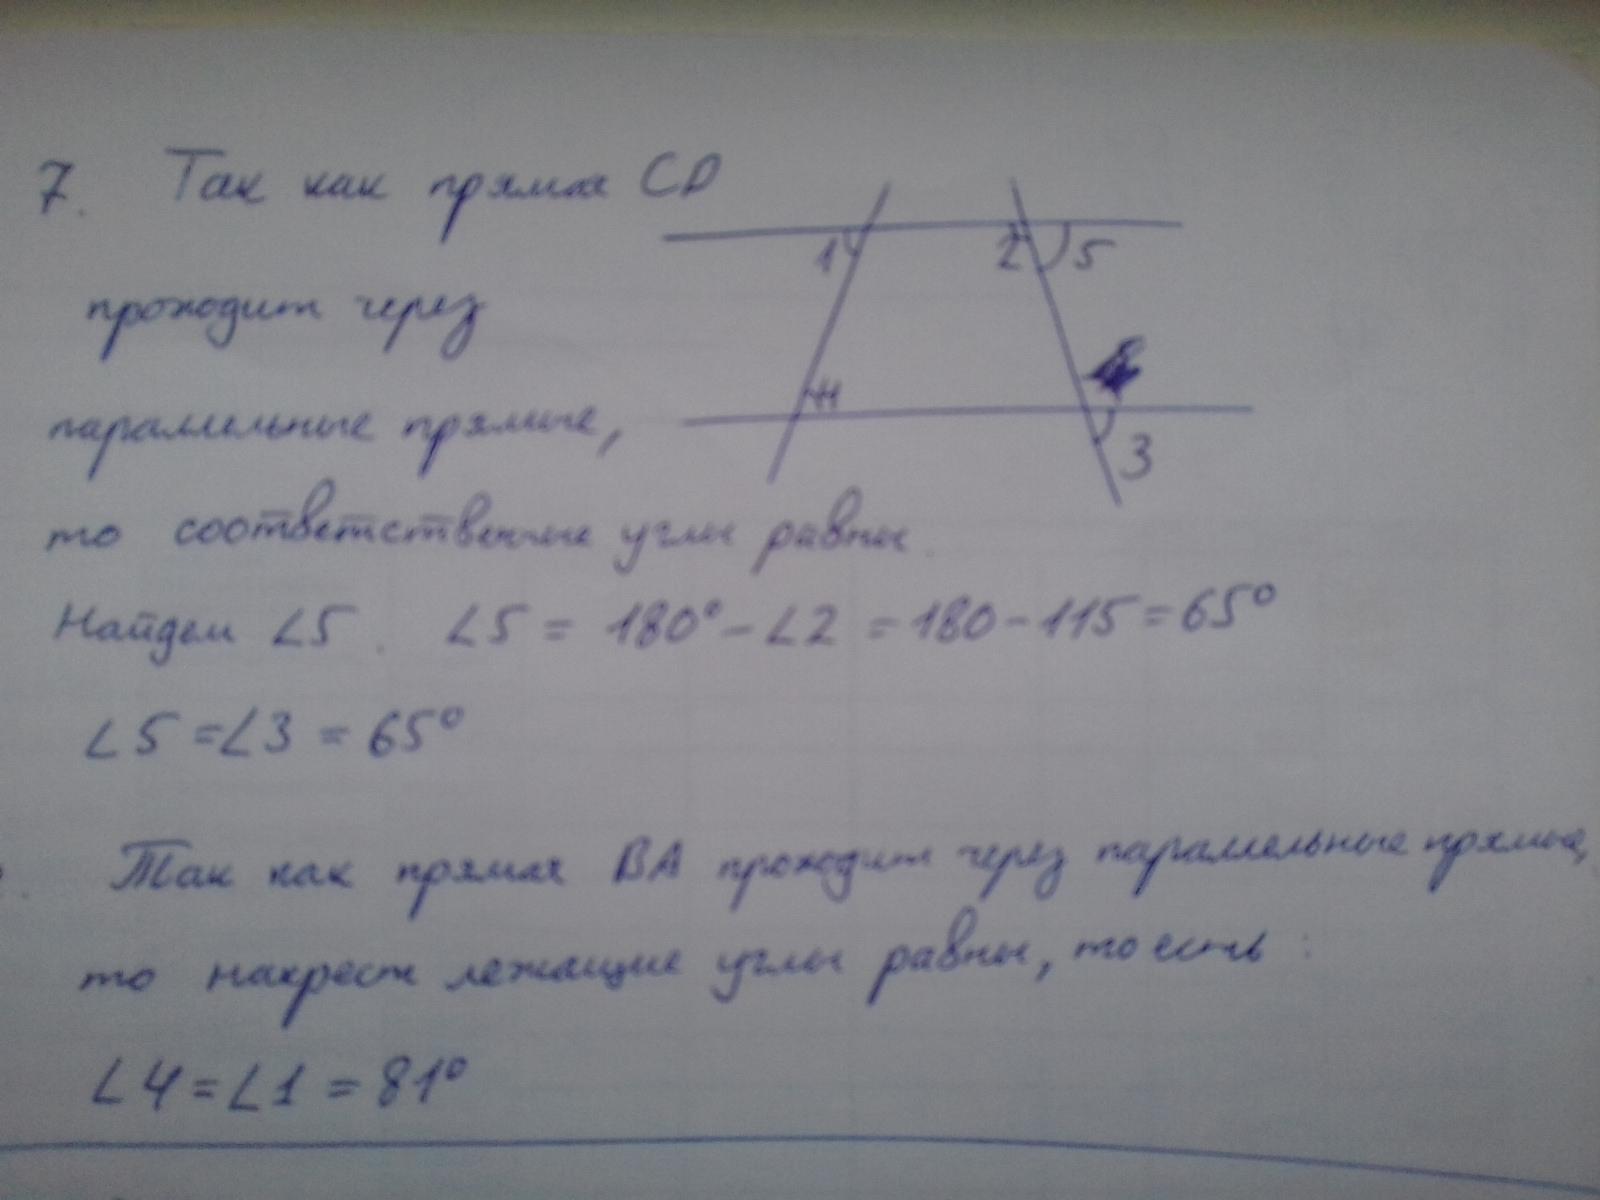 7. Так как прямая CD
1 2 5
проходит через
4
параллельные прямые,
3
то соответственные углы равны.
Найдем ∠5. ∠5 = 180° - ∠2 = 180 - 115 = 65°
∠5 = ∠3 = 65°
Так как прямая BA проходит через параллельные прямые,
то накрест лежащие углы равны, то есть:
∠4 = ∠1 = 81°